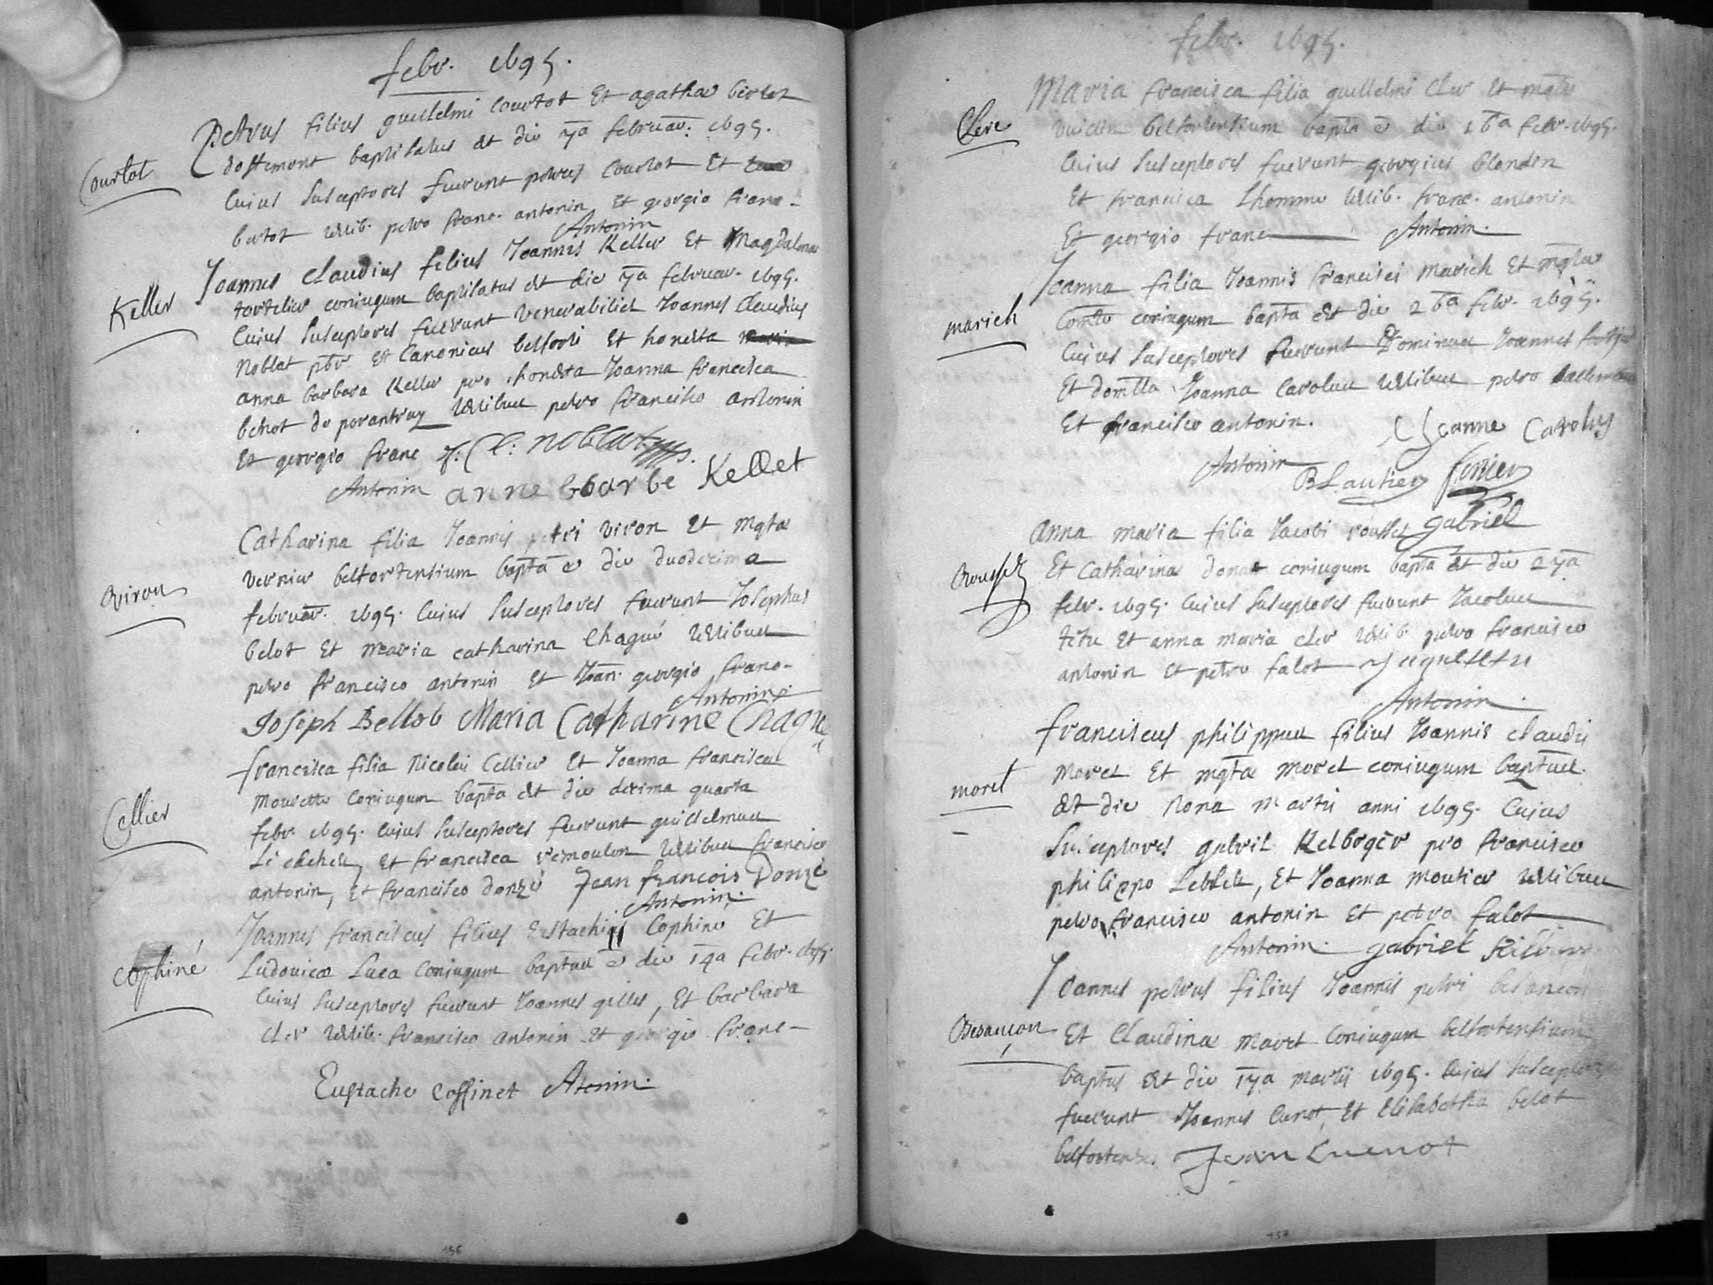 febr. 1695.
Petrus filius guillelmi Courtot Et agathae bertot
baptisatus est die 7a februar: 1695.
Courtot
Cuius Susceptores fuerunt petrus Courtot Et
bertot testib. petro franc. antonin Et georgio franc-
Antonin
Joannes Claudius filius Joannis Keller Et Magdalenae
coniugum baptisatus est die 7a februar. 1695.
Keller
Cuius Susceptores fuerunt Venerabilis Joannes Claudius
Noblat pbr Et Canonicus belforti Et honesta
anna barbara Keller pro honesta Joanna francisca
bechot de porantruy testibus petro francisco antonin
Et georgio franc J: Cl: Noblat
Antonin anne barbe Kellet
Catharina filia Joannis petri viron Et mgtae
vernier belfortensium bapta e die duodecima
Viron
februar. 1695. Cuius Susceptores fuerunt Josephus
belot Et maria catharina Chagué testibus
petro francisco antonin Et Joan. georgio franc-
Antonin.
Joseph Bellot Maria Catharine Chague
francisca filia Nicolai Cellier Et Joanna francisca
coniugum bapta est die decima quarta
Cellier
febr. 1695. cuius Susceptores fuerunt guillelmus
Et francisca remoulon testibus francisco
antonin, Et francisco donzé Jean francois Donzé
Antonin.
Joannes franciscus filius Eustachii Cophine Et
Cophiné
Ludovicae Luca Coniugum baptus e die 14a febr. 1695.
Cuius Susceptores fuerunt Joannes gilles, Et barbara
Cler testib. francisco antonin et georgio franc-
Eustache Coffinet Atonin.
156
febr. 1695.
Maria francisca filia guillelmi Cler Et mgtae
Clere
belfortensium bapta e die 16a febr. 1695.
Cuius Susceptores fuerunt georgius blondin
Et francisca Lhomme testib. franc. antonin
Et georgio franc Antonin.
Joanna filia Joannis francisci marich Et mgtae
marich
coniugum bapta est die 26a febr. 1695.
Cuius Susceptores fuerunt Dominus Joannes
Et domlla Joanna Carolus testibus petro
Et francisco antonin. Jeanne Carolus
Antonin
Anna maria filia Jacobi rousset gabriel
Rousset
Et Catharinae donat coniugum bapta est die 27a
febr. 1695. Cuius Susceptores fuerunt Jacobus
Et anna maria cler testib petro francisco
antonin Et petro falot
Antonin.
franciscus philippus filius Joannis claudii
moret Et mgtae moret coniugum baptus
morel
est die Nona martii anni 1695. Cuius
Susceptores gabriel Kelberger pro francisco
philippo Et Joanna moutier testibus
petro francisco antonin Et petro falot
Antonin. gabriel
Joannes petrus filius Joannis petri besancon
Besancon
Et Claudinae moret Coniugum belfortensium
baptus est die 17a martii 1695. Cuius Susceptores
fuerunt Joannes Cunot, Et Elisabetha belot
belfortenses. Jean Cuenot
157